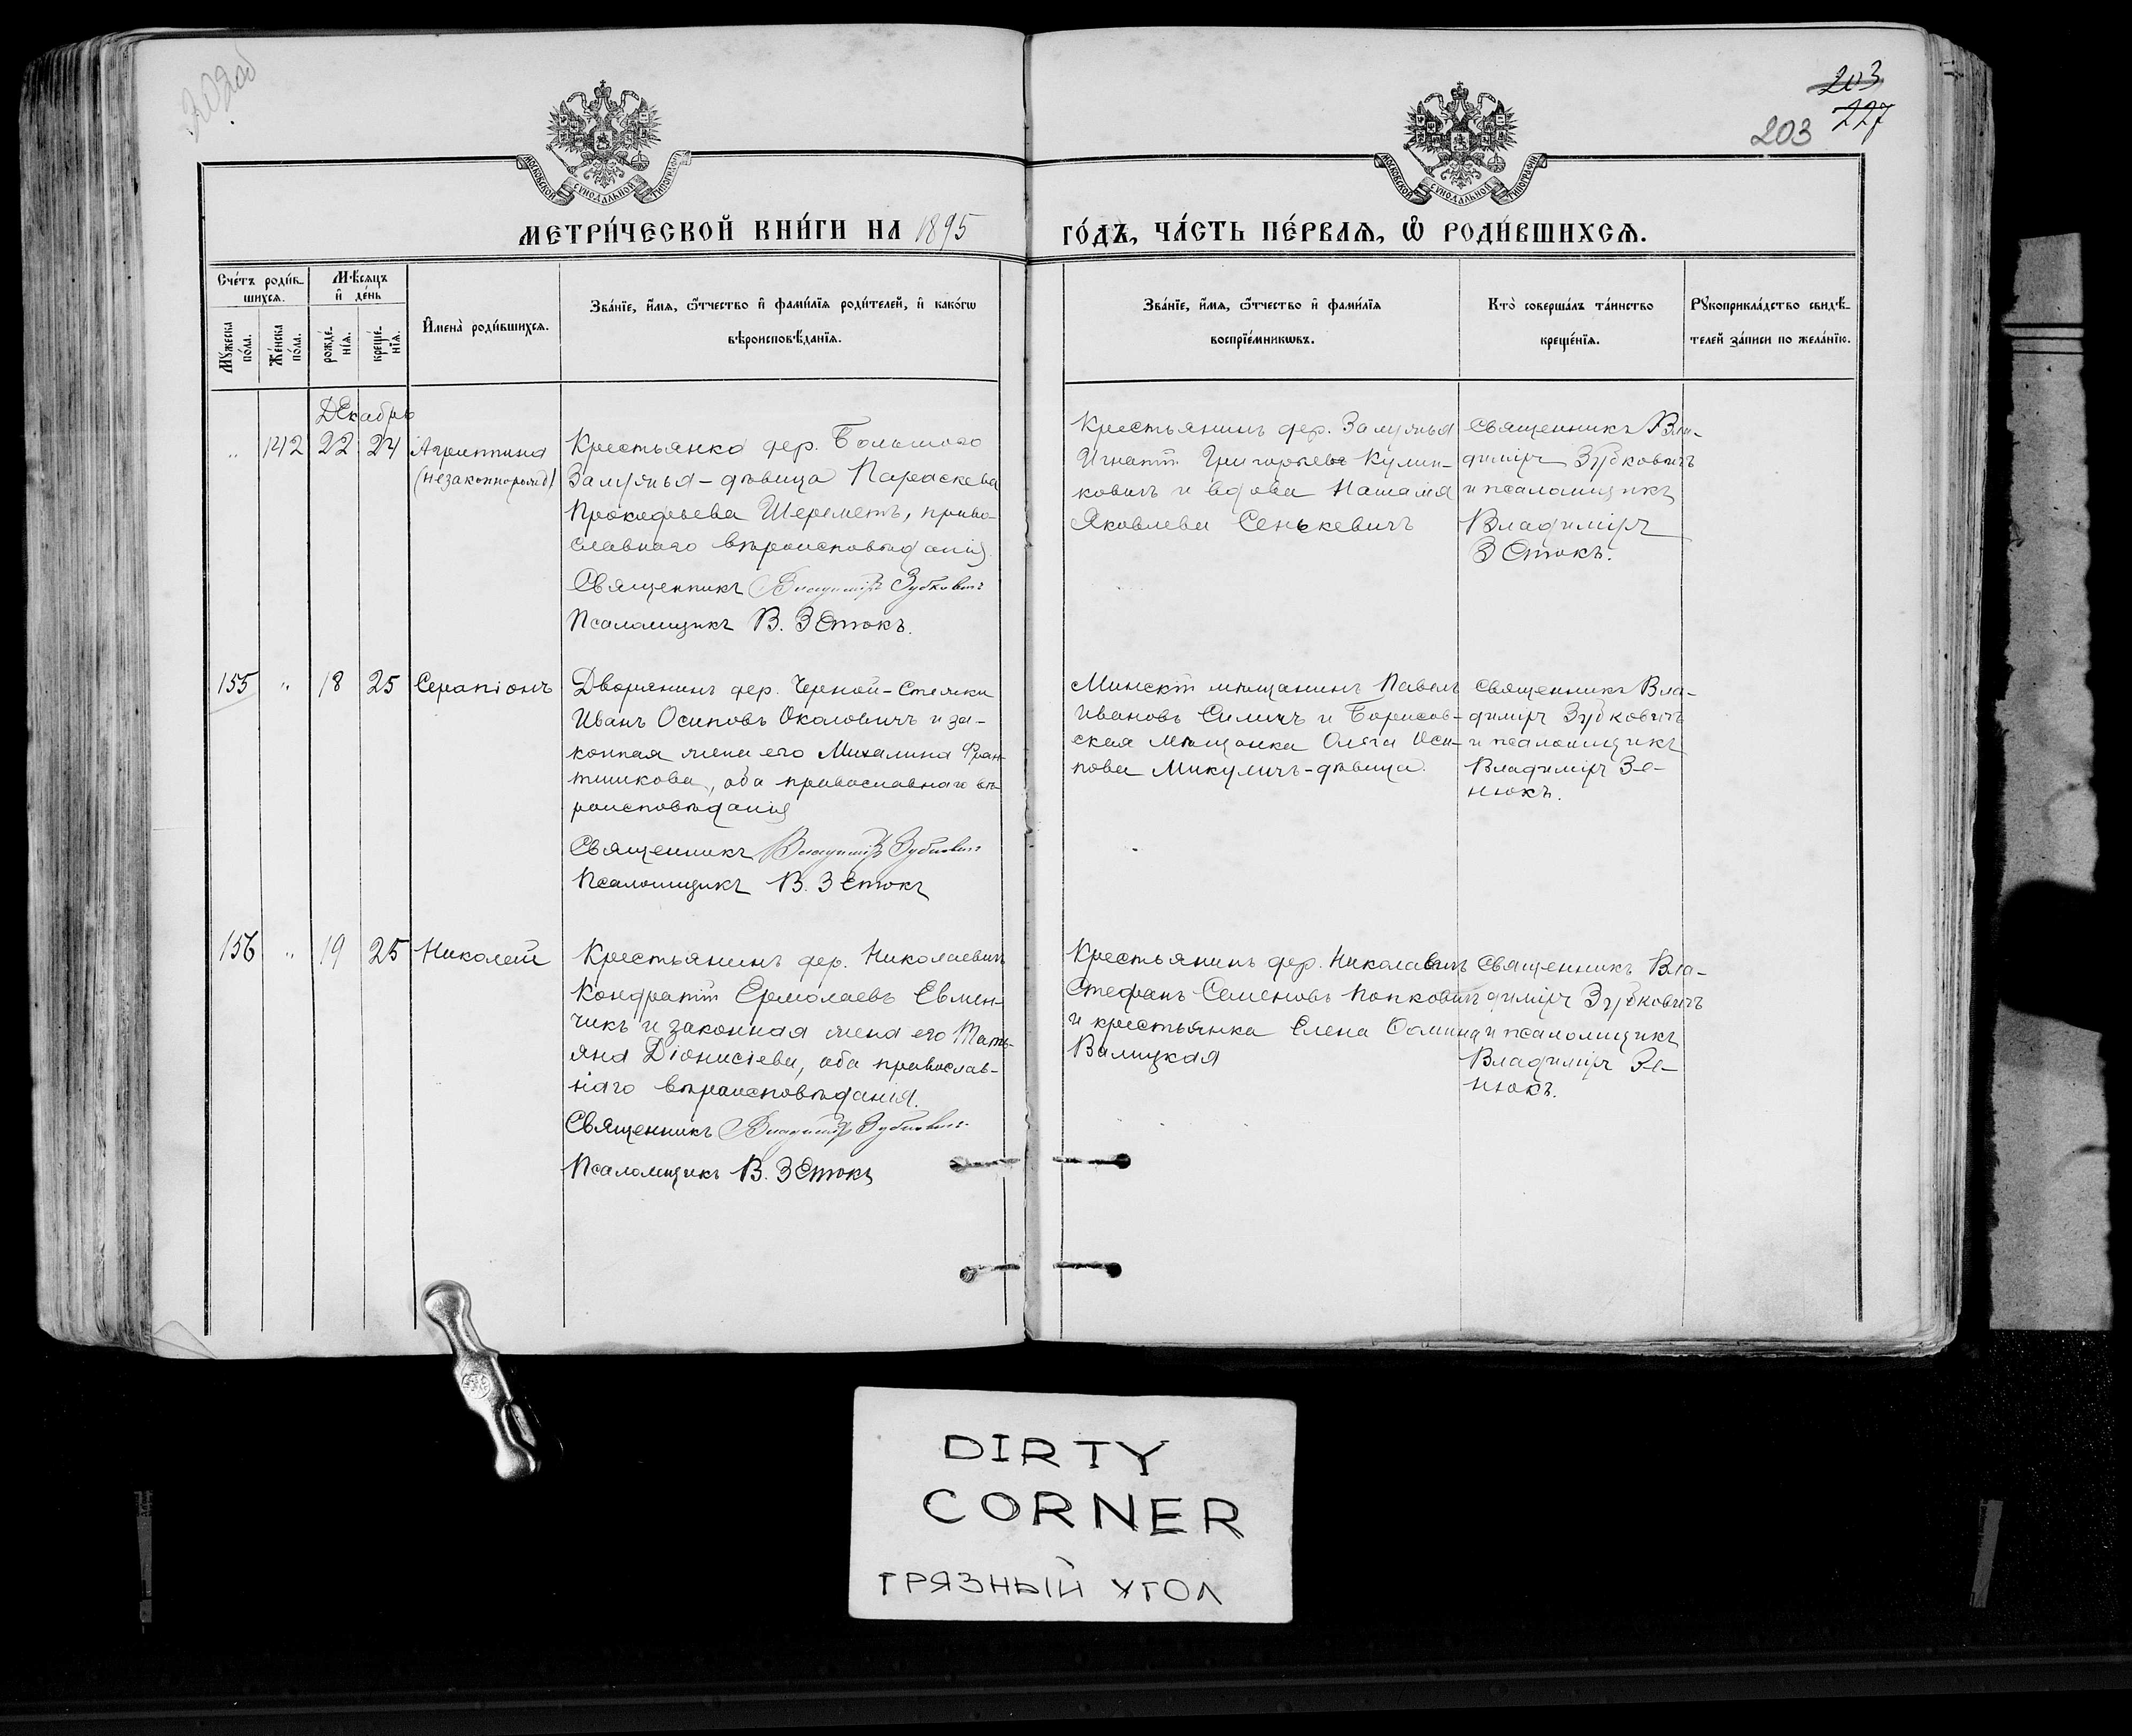 203
227
203
МОСКОВСКОЙ СѴНОДАЛЬНОЙ ТИПОГРАФІИ
МОСКОВСКОЙ СѴНОДАЛЬНОЙ ТИПОГРАФІИ
МЕТРИ́ЧЕСКОЙ КНИ́ГИ НА 1895
ГО́ДЪ, ЧА́СТЬ ПЕ́РВАѦ, Ѡ҆ РОДИ́ВШИХСѦ.
Сче́тъ роди́в-
шихсѧ.
Мꙋ́жеска по́ла.
Же́нска по́ла.
Мѣ́сѧцъ
и҆ де́нь
рожде́-
нїѧ.
креще́-
нїѧ.
И҆мена̀ роди́вшихсѧ.
Зва́нїе, и҆́мѧ, ѻ҆́тчество и҆ фами́лїѧ роди́телей, и҆ како́гѡ
вѣроисповѣ́данїѧ.
Зва́нїе, и҆́мѧ, ѻ҆́тчество и҆ фами́лїѧ
воспрїе́мникѡвъ.
Кто̀ соверша́лъ та́инство
креще́нїѧ.
Рꙋкоприкла́дство свидѣ́-
телей за́писи по жела́нїю.
Декабрь
" 142 22 24 Агриппина
(незаконнорожд)
Крестьянка дер. Большого
Замужья - дѣвица Параскева
Прокофьева Шереметъ, право-
славнаго вѣроисповѣданія.
Священникъ Владиміръ Зубковичъ
Псаломщикъ В. Зенюкъ.
Крестьянинъ дер. Замужья
Игнатій Григорьевъ Кулин-
ковичъ и вдова Наталія
Яковлева Сенькевичъ
Священникъ Вла-
диміръ Зубковичъ
и псаломщикъ
Владиміръ
Зенюкъ.
155 " 18 25 Серапіонъ
Дворянинъ дер. Черной-
Иванъ Осиповъ Околовичъ и за-
конная жена его Михалина Фран-
тишкова, оба православнаго вѣ-
роисповѣданія
Священникъ Владиміръ Зубковичъ
Псаломщикъ В. Зенюкъ
Минскій мѣщанинъ Павелъ
Ивановъ Силичъ и Борисов-
ская мѣщанка Ольга Оси-
пова Микуличъ - дѣвица.
Священникъ Вла-
диміръ Зубковичъ
и псаломщикъ
Владиміръ Зе-
нюкъ.
156 " 19 25 Николай
Крестьянинъ дер. Николаевичъ
Кондратій Ермолаевъ Евмен-
чикъ и законная жена его Тать-
яна Діонисіева, оба православ-
наго вѣроисповѣданія.
Священникъ Владиміръ Зубковичъ
Псаломщикъ В. Зенюкъ
Крестьянинъ дер. Николаевичъ
Стефанъ Семеновъ Попковичъ
и крестьянка Елена Фомина
Валицкая
Священникъ Вла-
диміръ Зубковичъ
и псаломщикъ
Владиміръ Зе-
нюкъ.
DIRTY
CORNER
ГРЯЗНЫЙ УГОЛ